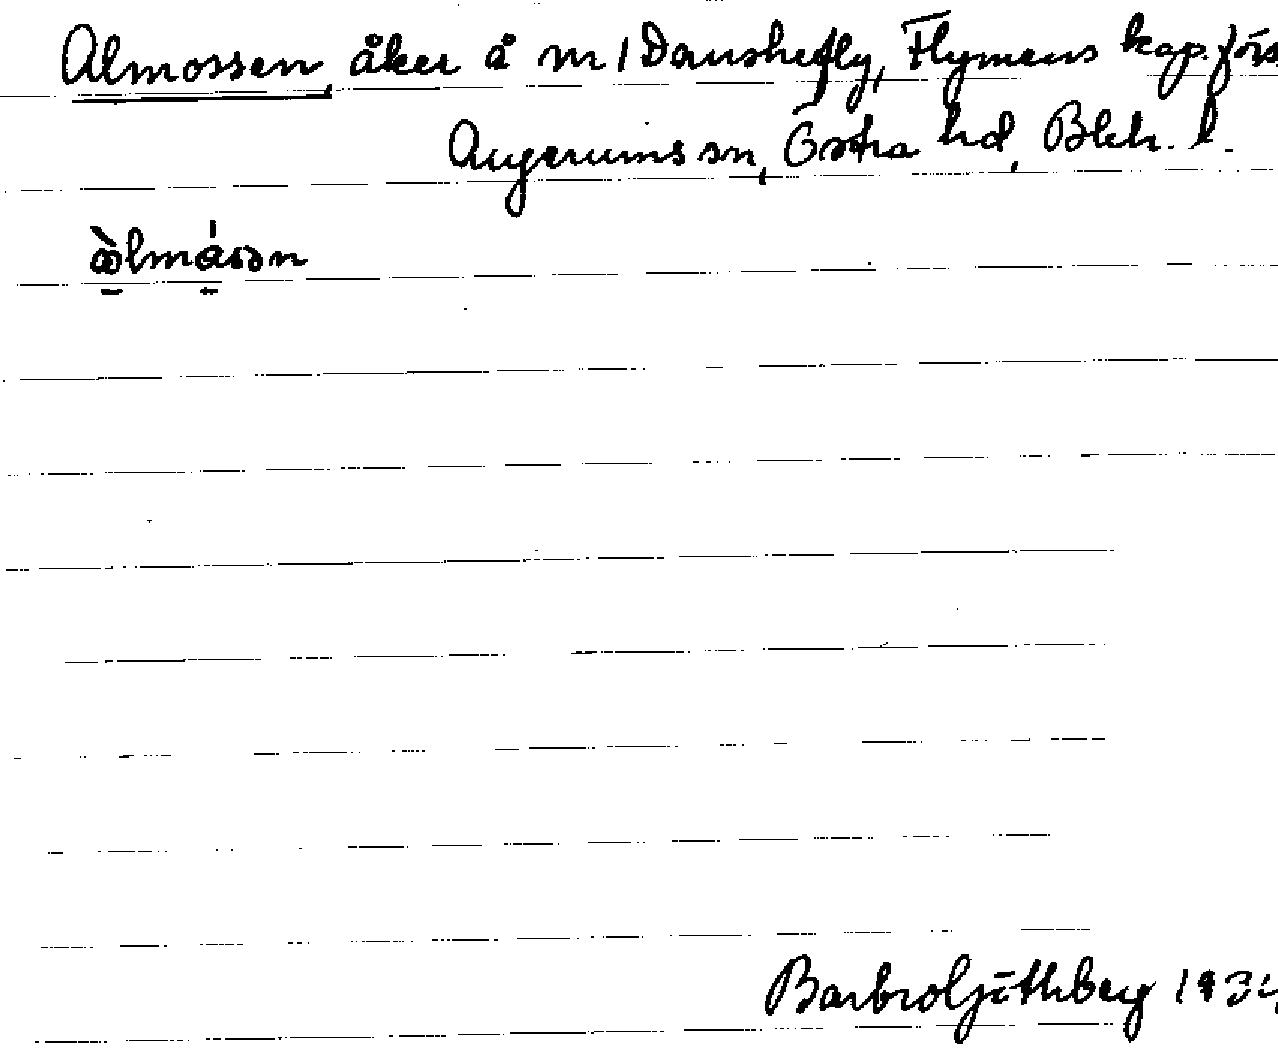 Almossen, åker å nr 1 Danskefly, Flymens kap.förs
Augerums sn, Östra hd, Blek. l.
Barbro Göthberg